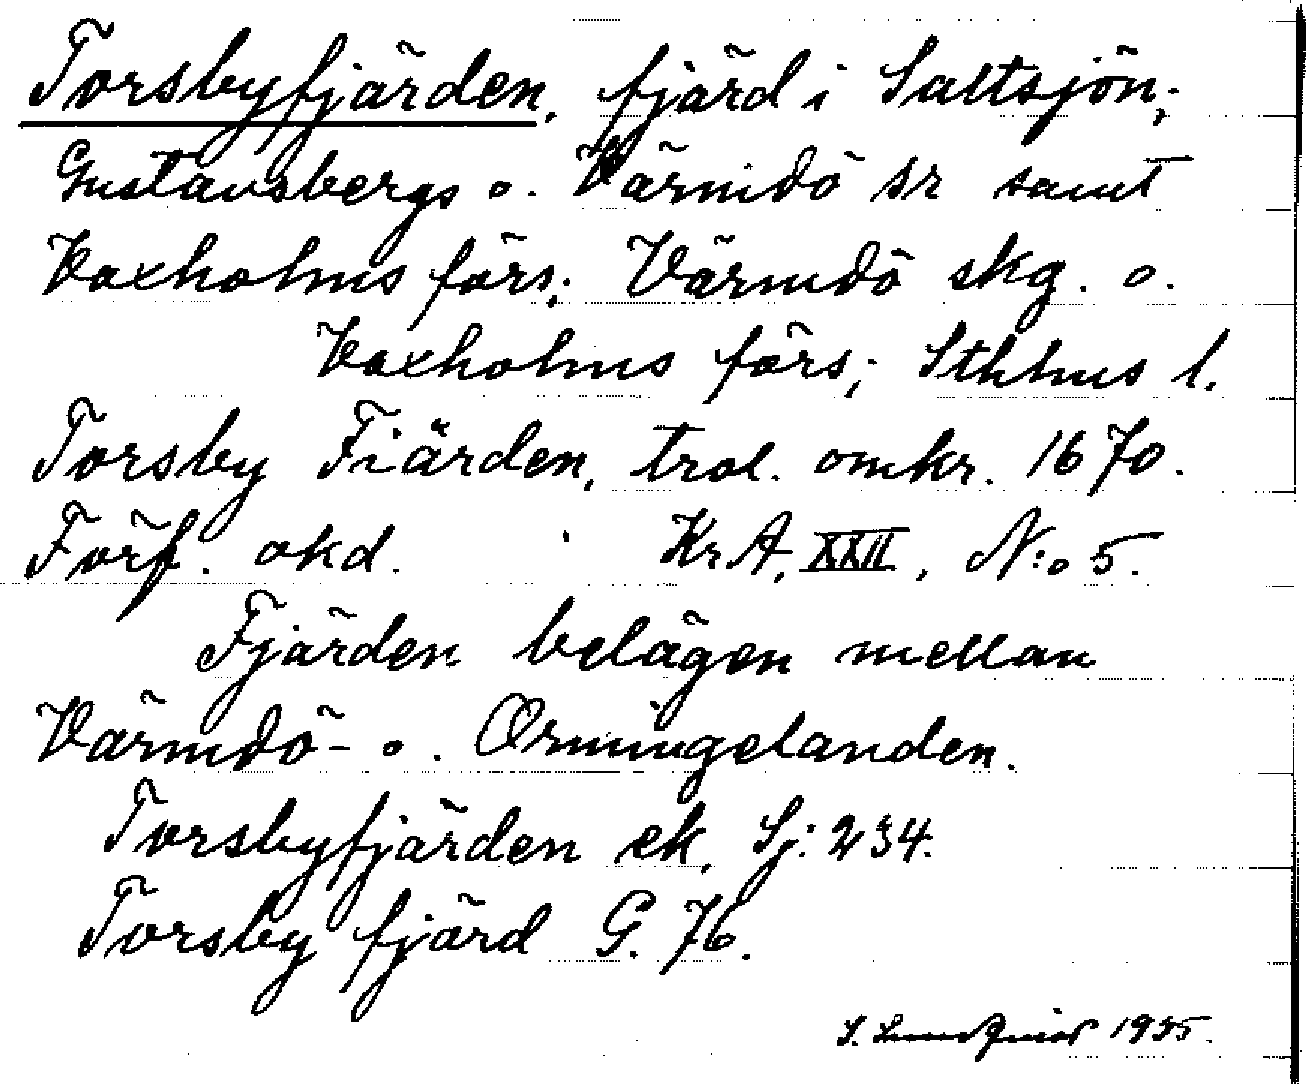 Torsbyfjärden, fjärd i Saltsjön;
Gustavsbergs o. Värmdö sr samt
Vaxholms förs; Värmdö skg. o.
Vaxholms förs; Sthlms l.
Torsby Fiärden, trol. omkr. 1670.
Förf. okd. Kr A, XXII, N:o 5.
Fjärden belägen mellan
Värmdö- o. Ormingelanden.
Torsbyfjärden ek. Sj: 234.
Torsby fjärd G. 76.
S. Lundquist 1935.